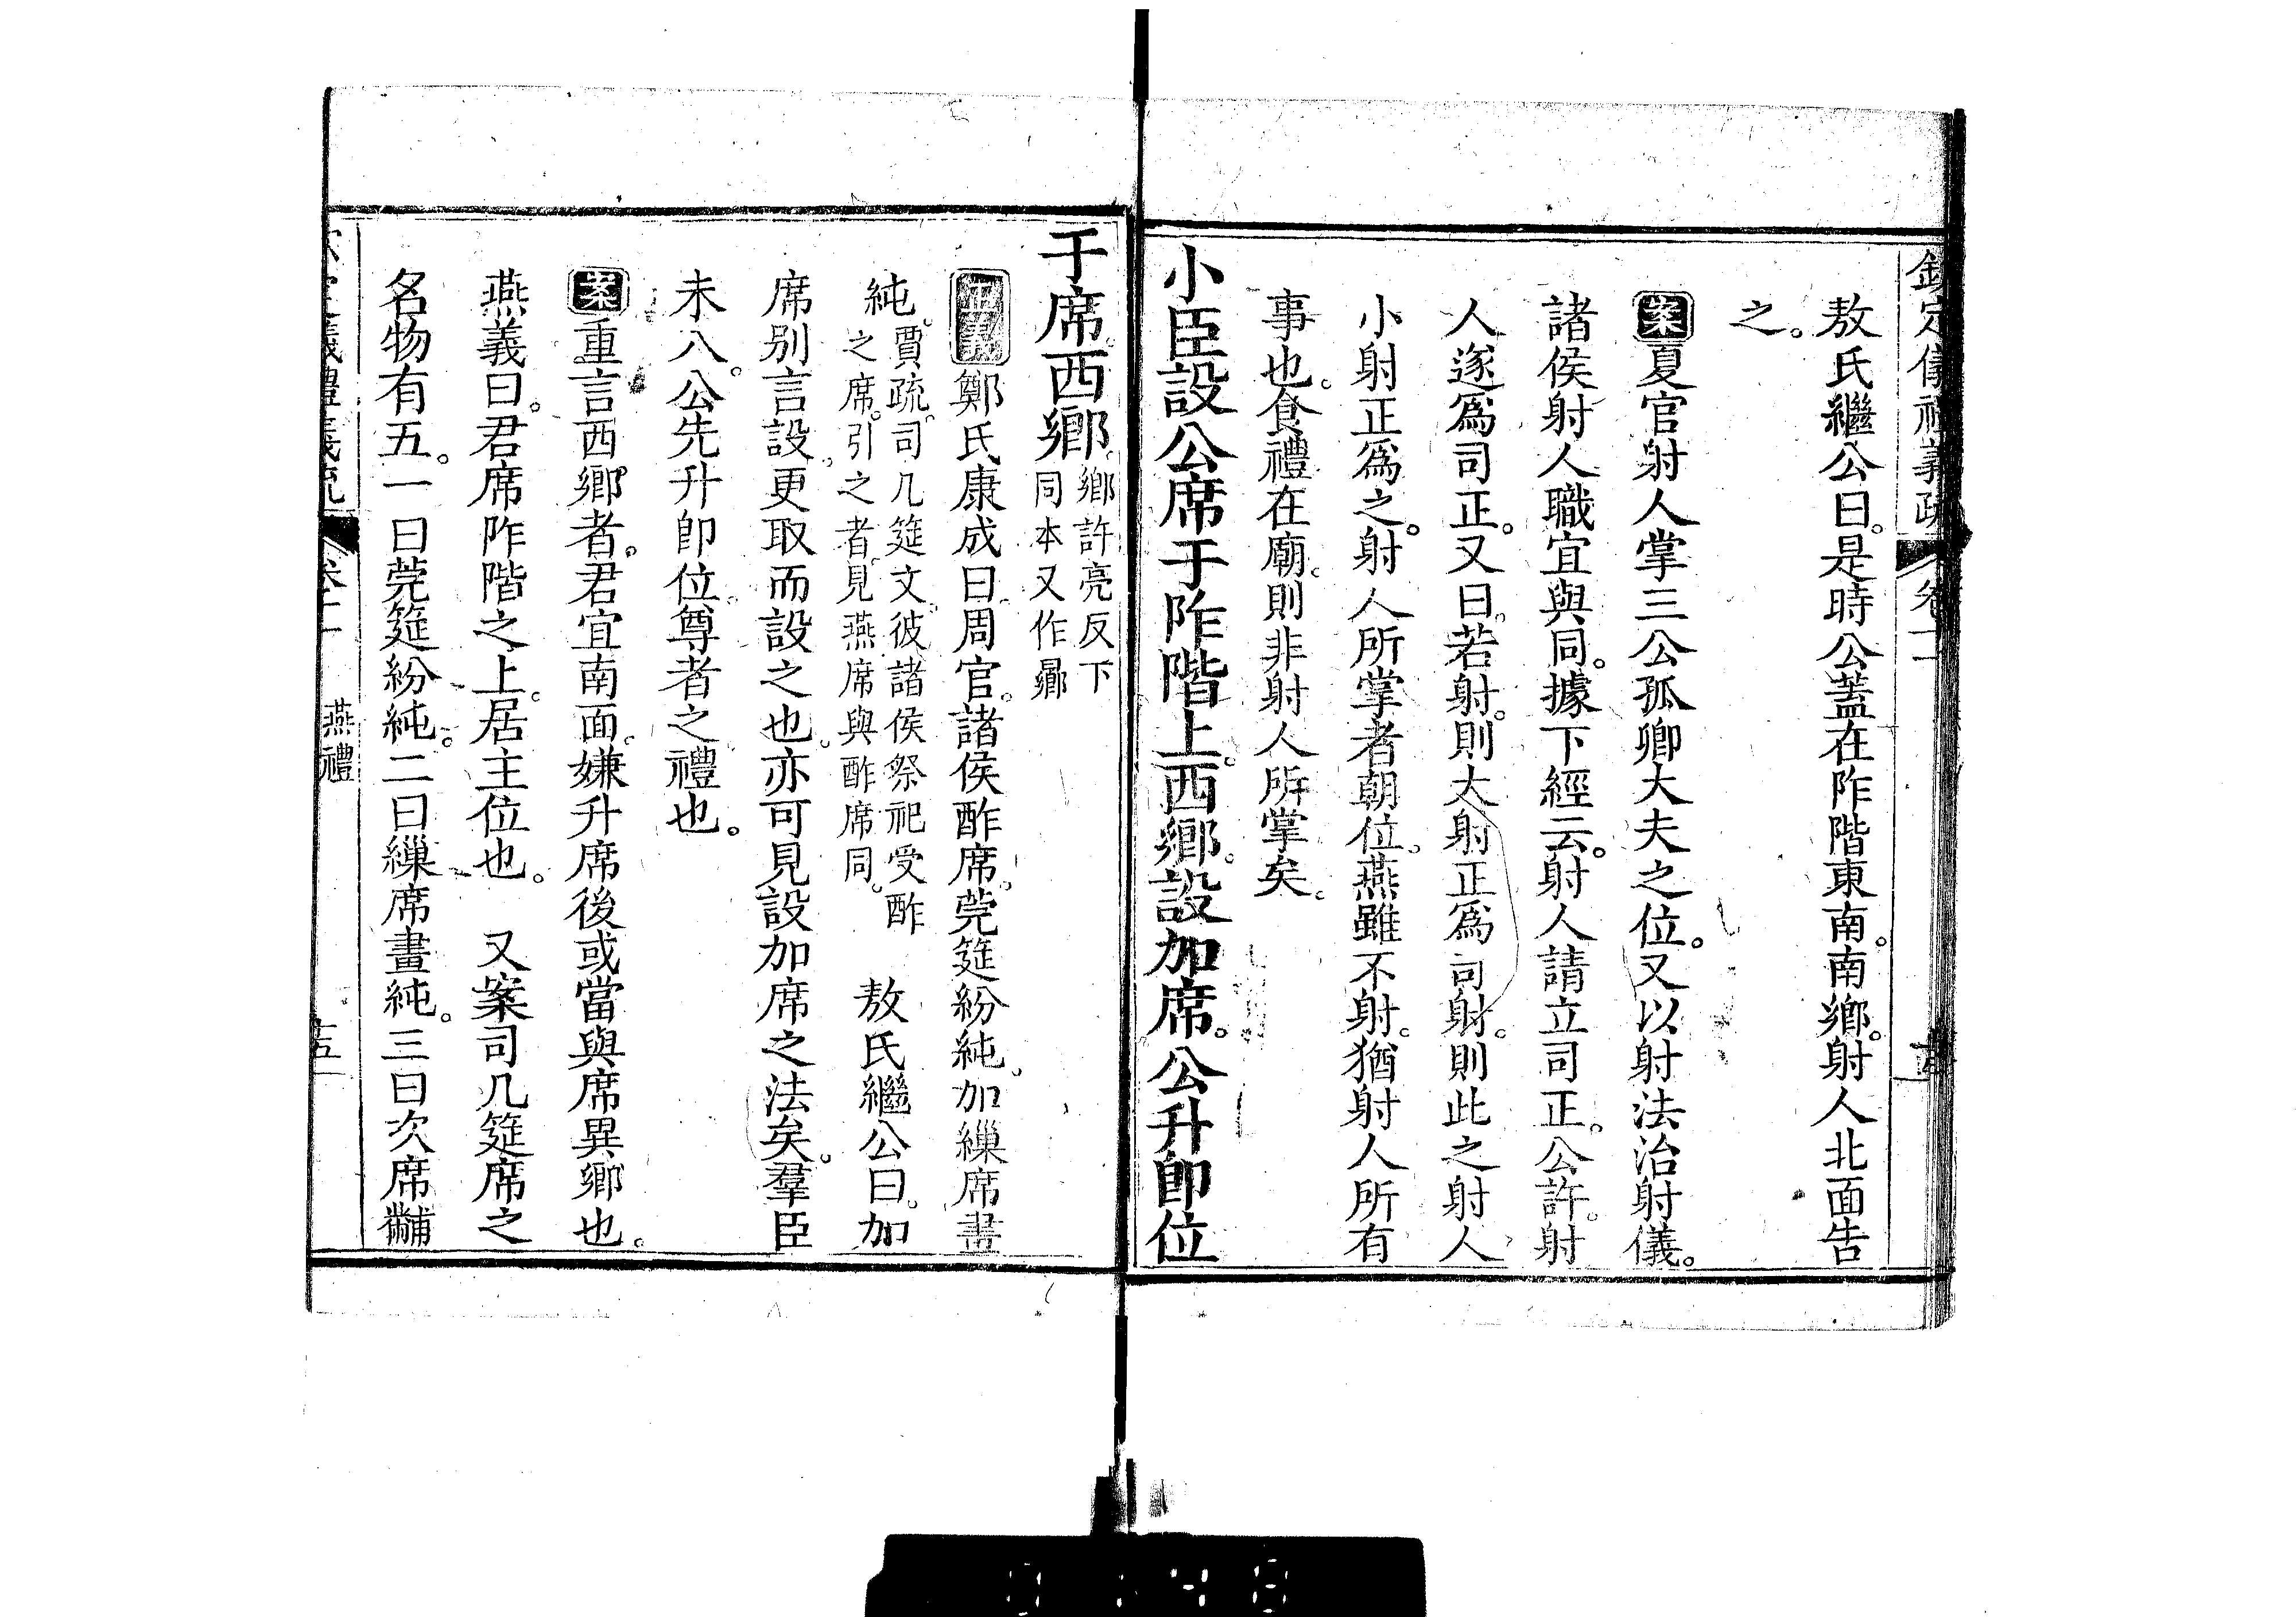 敖氏繼公曰。是時公蓋在阼階東南。南鄉。射人北面告
之。
案夏官射人掌三公孤卿大夫之位。又以射法治射儀。
諸侯射人職宜與同。據下經云。射人請立司正。公許。射
人遂爲司正。又曰。若射。則大射正爲司射。則此之射人
小射正爲之。射人所掌者朝位。燕雖不射。猶射人所有
事也。食禮在廟。則非射人所掌矣。
小臣設公席于阼階上。西鄉。設加席。公升即位
于席。西鄉。鄉許亮反下同本又作曏
正義鄭氏康成曰。周官。諸侯酢席。莞筵紛純。加繅席畫
純。賈疏。司几筵文。彼諸侯祭祀受酢之席。引之者。見燕席與酢席同。 敖氏繼公曰。加
席別言設。更取而設之也。亦可見設加席之法矣。羣臣
未入。公先升即位。尊者之禮也。
案重言西鄉者。君宜南面。嫌升席後或當與席異鄉也。
燕義曰。君席阼階之上。居主位也。 又案司几筵席之
名物有五。一曰莞筵紛純。二曰繅席畫純。三曰次席黼
欽定儀禮義疏 卷十一 燕禮 十五